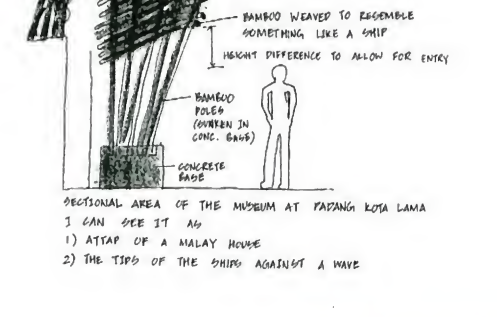 BAMBOO WEAVED TO RESEMBLE
SOMETHING LIKE A SHIP
HEIGHT DIFFERENCE TO ALLOW FOR ENTRY
BAMBOO
POLES
(SUNKEN IN
CONC. BASE)
CONCRETE
BASE
SECTIONAL AREA OF THE MUSEUM AT PADANG KOTA LAMA
I CAN SEE IT AS
1) ATTAP OF A MALAY HOUSE
2) THE TIPS OF THE SHIPS AGAINST A WAVE